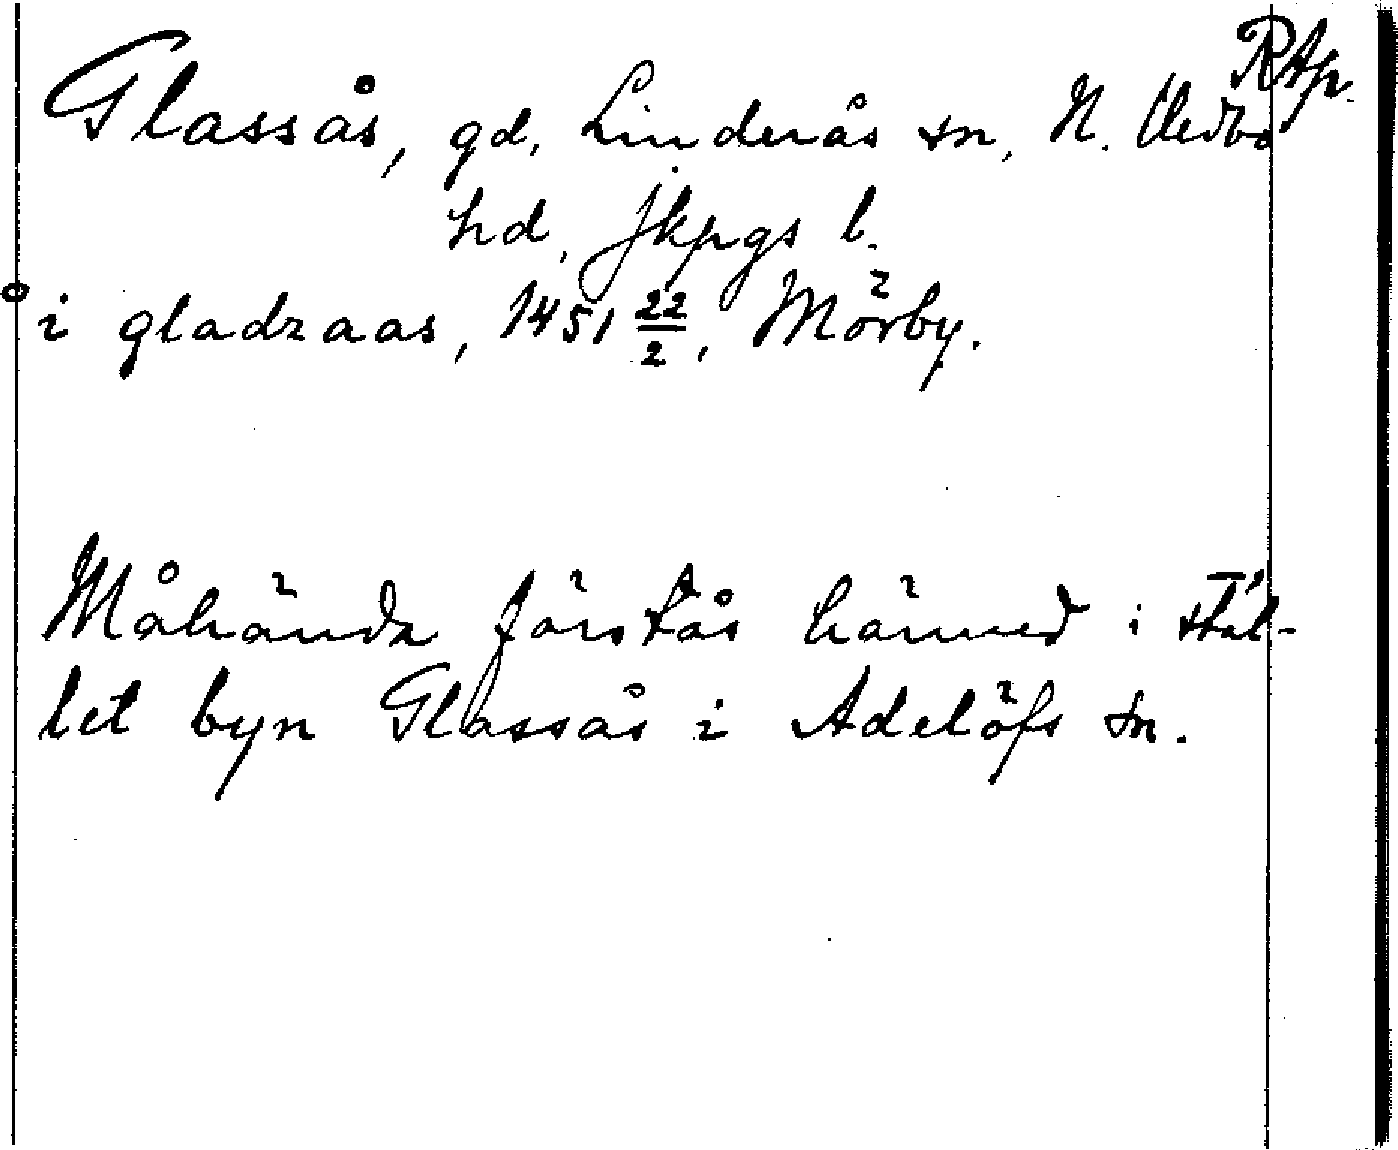 RAp.
Glassås, gd, Linderås sn, N. Vedbo
hd, Jkpgs l.
i gladzaas, 1451 22/2, Mörby.
Måhända förstås härmed i stäl-
let byn Glassås i Adelöfs sn.